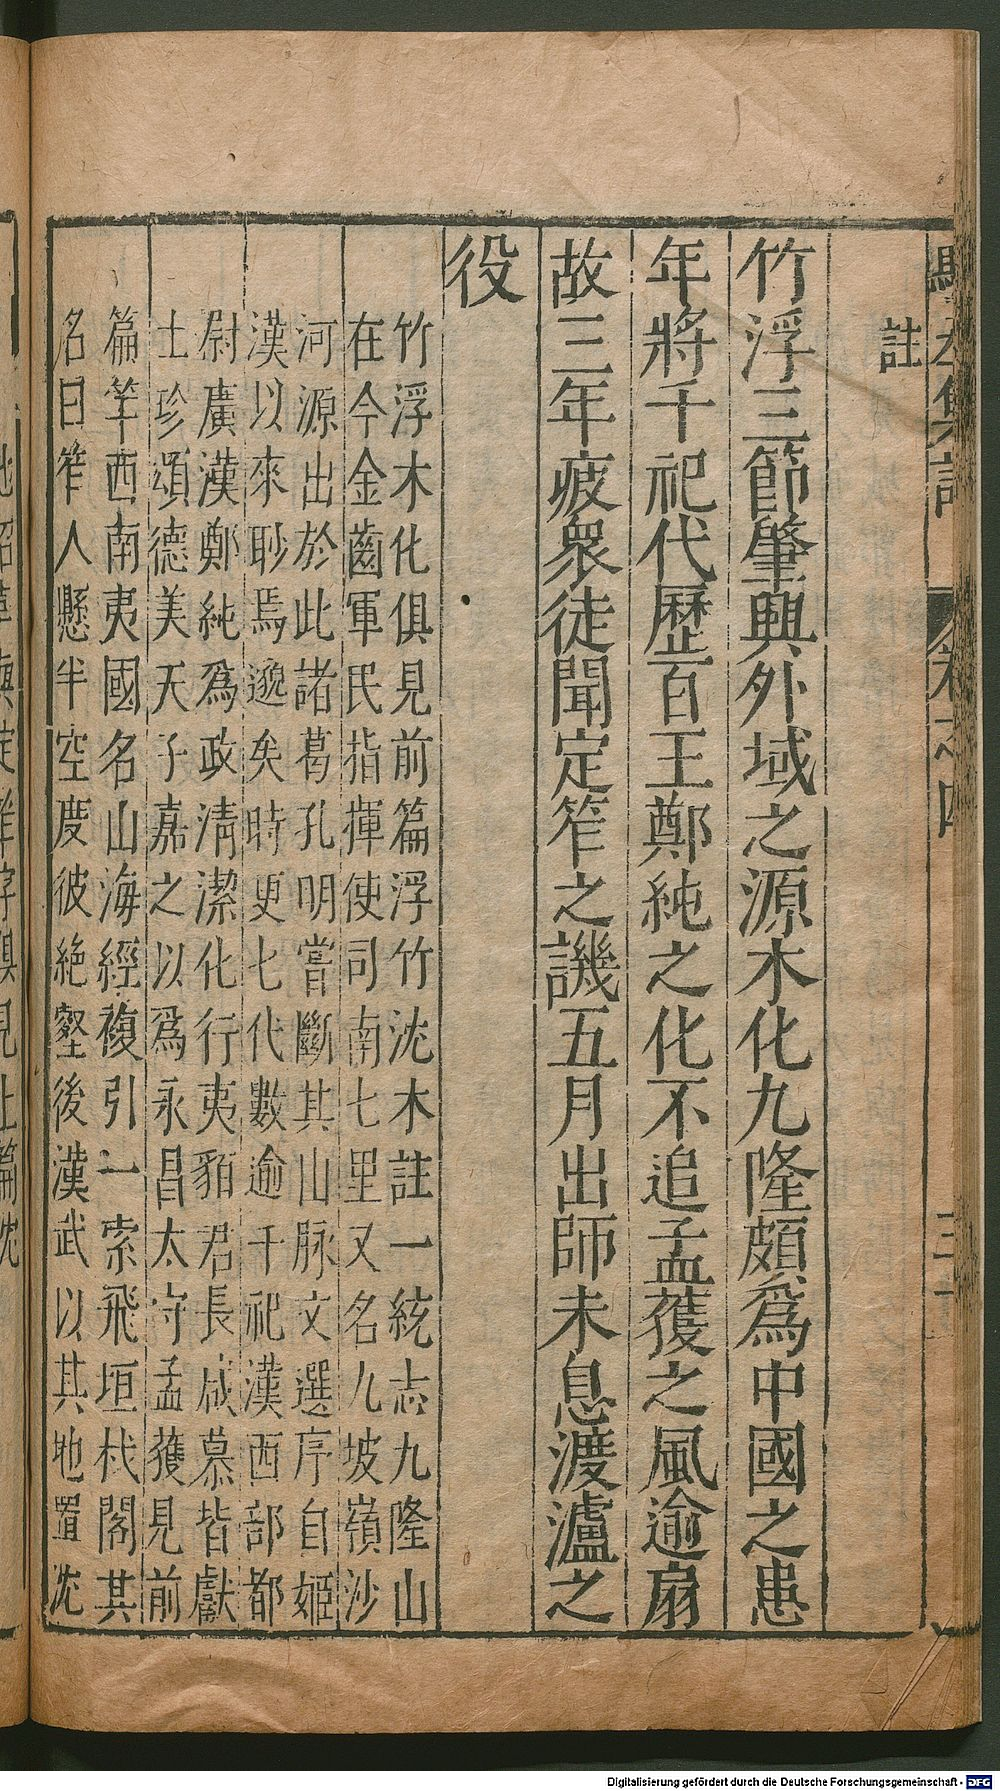 註
竹浮三節肇興外域之源木化九隆頗爲中國之患
年將千祀代歷百王鄭純之化不追孟獲之風逾扇
故三年疲衆徒聞定笮之譏五月出師未息渡瀘之
役
竹浮木化俱見前篇浮竹沈木註一統志九隆山
在今金齒軍民指揮使司南七里又名九坡嶺沙
河源出於此諸葛孔明嘗斷其山脉文選序自姬
漢以來眇焉邈矣時更七代數逾千祀漢西部都
尉廣漢鄭純爲政清潔化行夷貊君長咸慕皆獻
土珍頌德美天子嘉之以爲永昌太守孟獲見前
篇笮西南夷國名山海經複引一索飛垣杙閣其
名曰笮人懸半空度彼絶壑後漢武以其地置沈
Digitalisierung gefördert durch die Deutsche Forschungsgemeinschaft - DFG